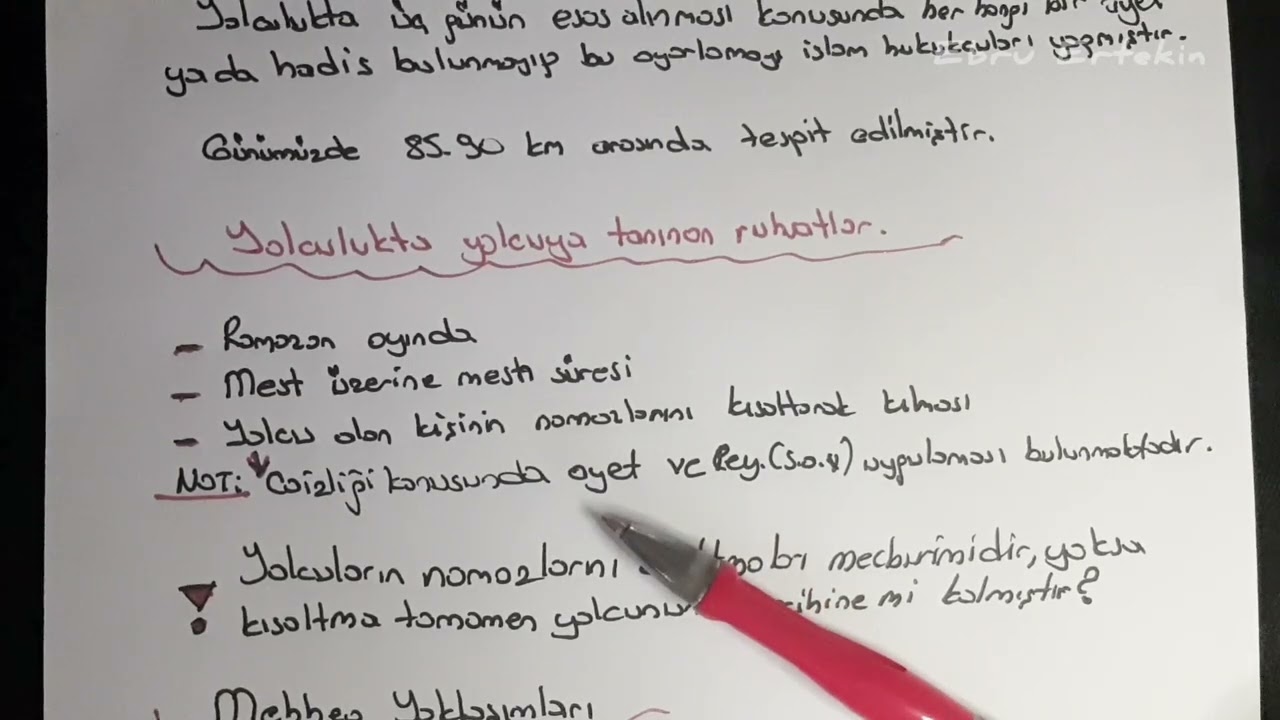 Yolculukta üç günün esas alınması konusunda her hangi bir ayet
yada hadis bulunmayıp bu ayarlamayı islam hukukçuları yapmıştır.
Ebru Ertekin
Günümüzde 85.90 km arasında tespit edilmiştir.
Yolculukta yolcuya tanınan ruhsatlar.
- Ramazan ayında
- Mest üzerine mesh süresi
- Yolcu olan kişinin namazlarını kısaltarak kılması
NOT: Caizliği konusunda ayet ve Pey.(s.a.v) uygulaması bulunmaktadır.
Yolcuların namazlarnı mecburimidir, yoksa
kısaltma tamamen mi kalmıştır?
Mehhep Yaklaşımları